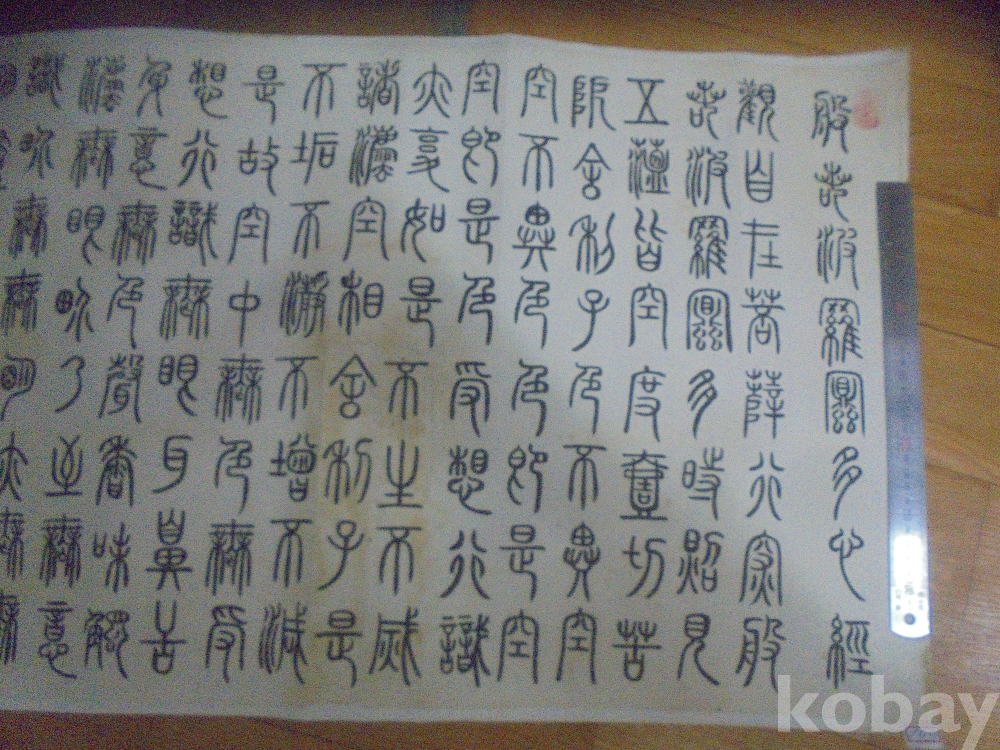 般若波羅蜜多心經
觀自在菩薩行深般
若波羅蜜多時照見
五蘊皆空度壹切苦
厄舍利子色不異空
空不異色色即是空
空即是色受想行識
亦復如是不生不滅
諸法空相舍利子是
不垢不淨不增不減
是故空中無色無受
想行識無眼耳鼻舌
身意無色聲香味觸
法無眼界乃至無意
識界無無明亦無無
kobay